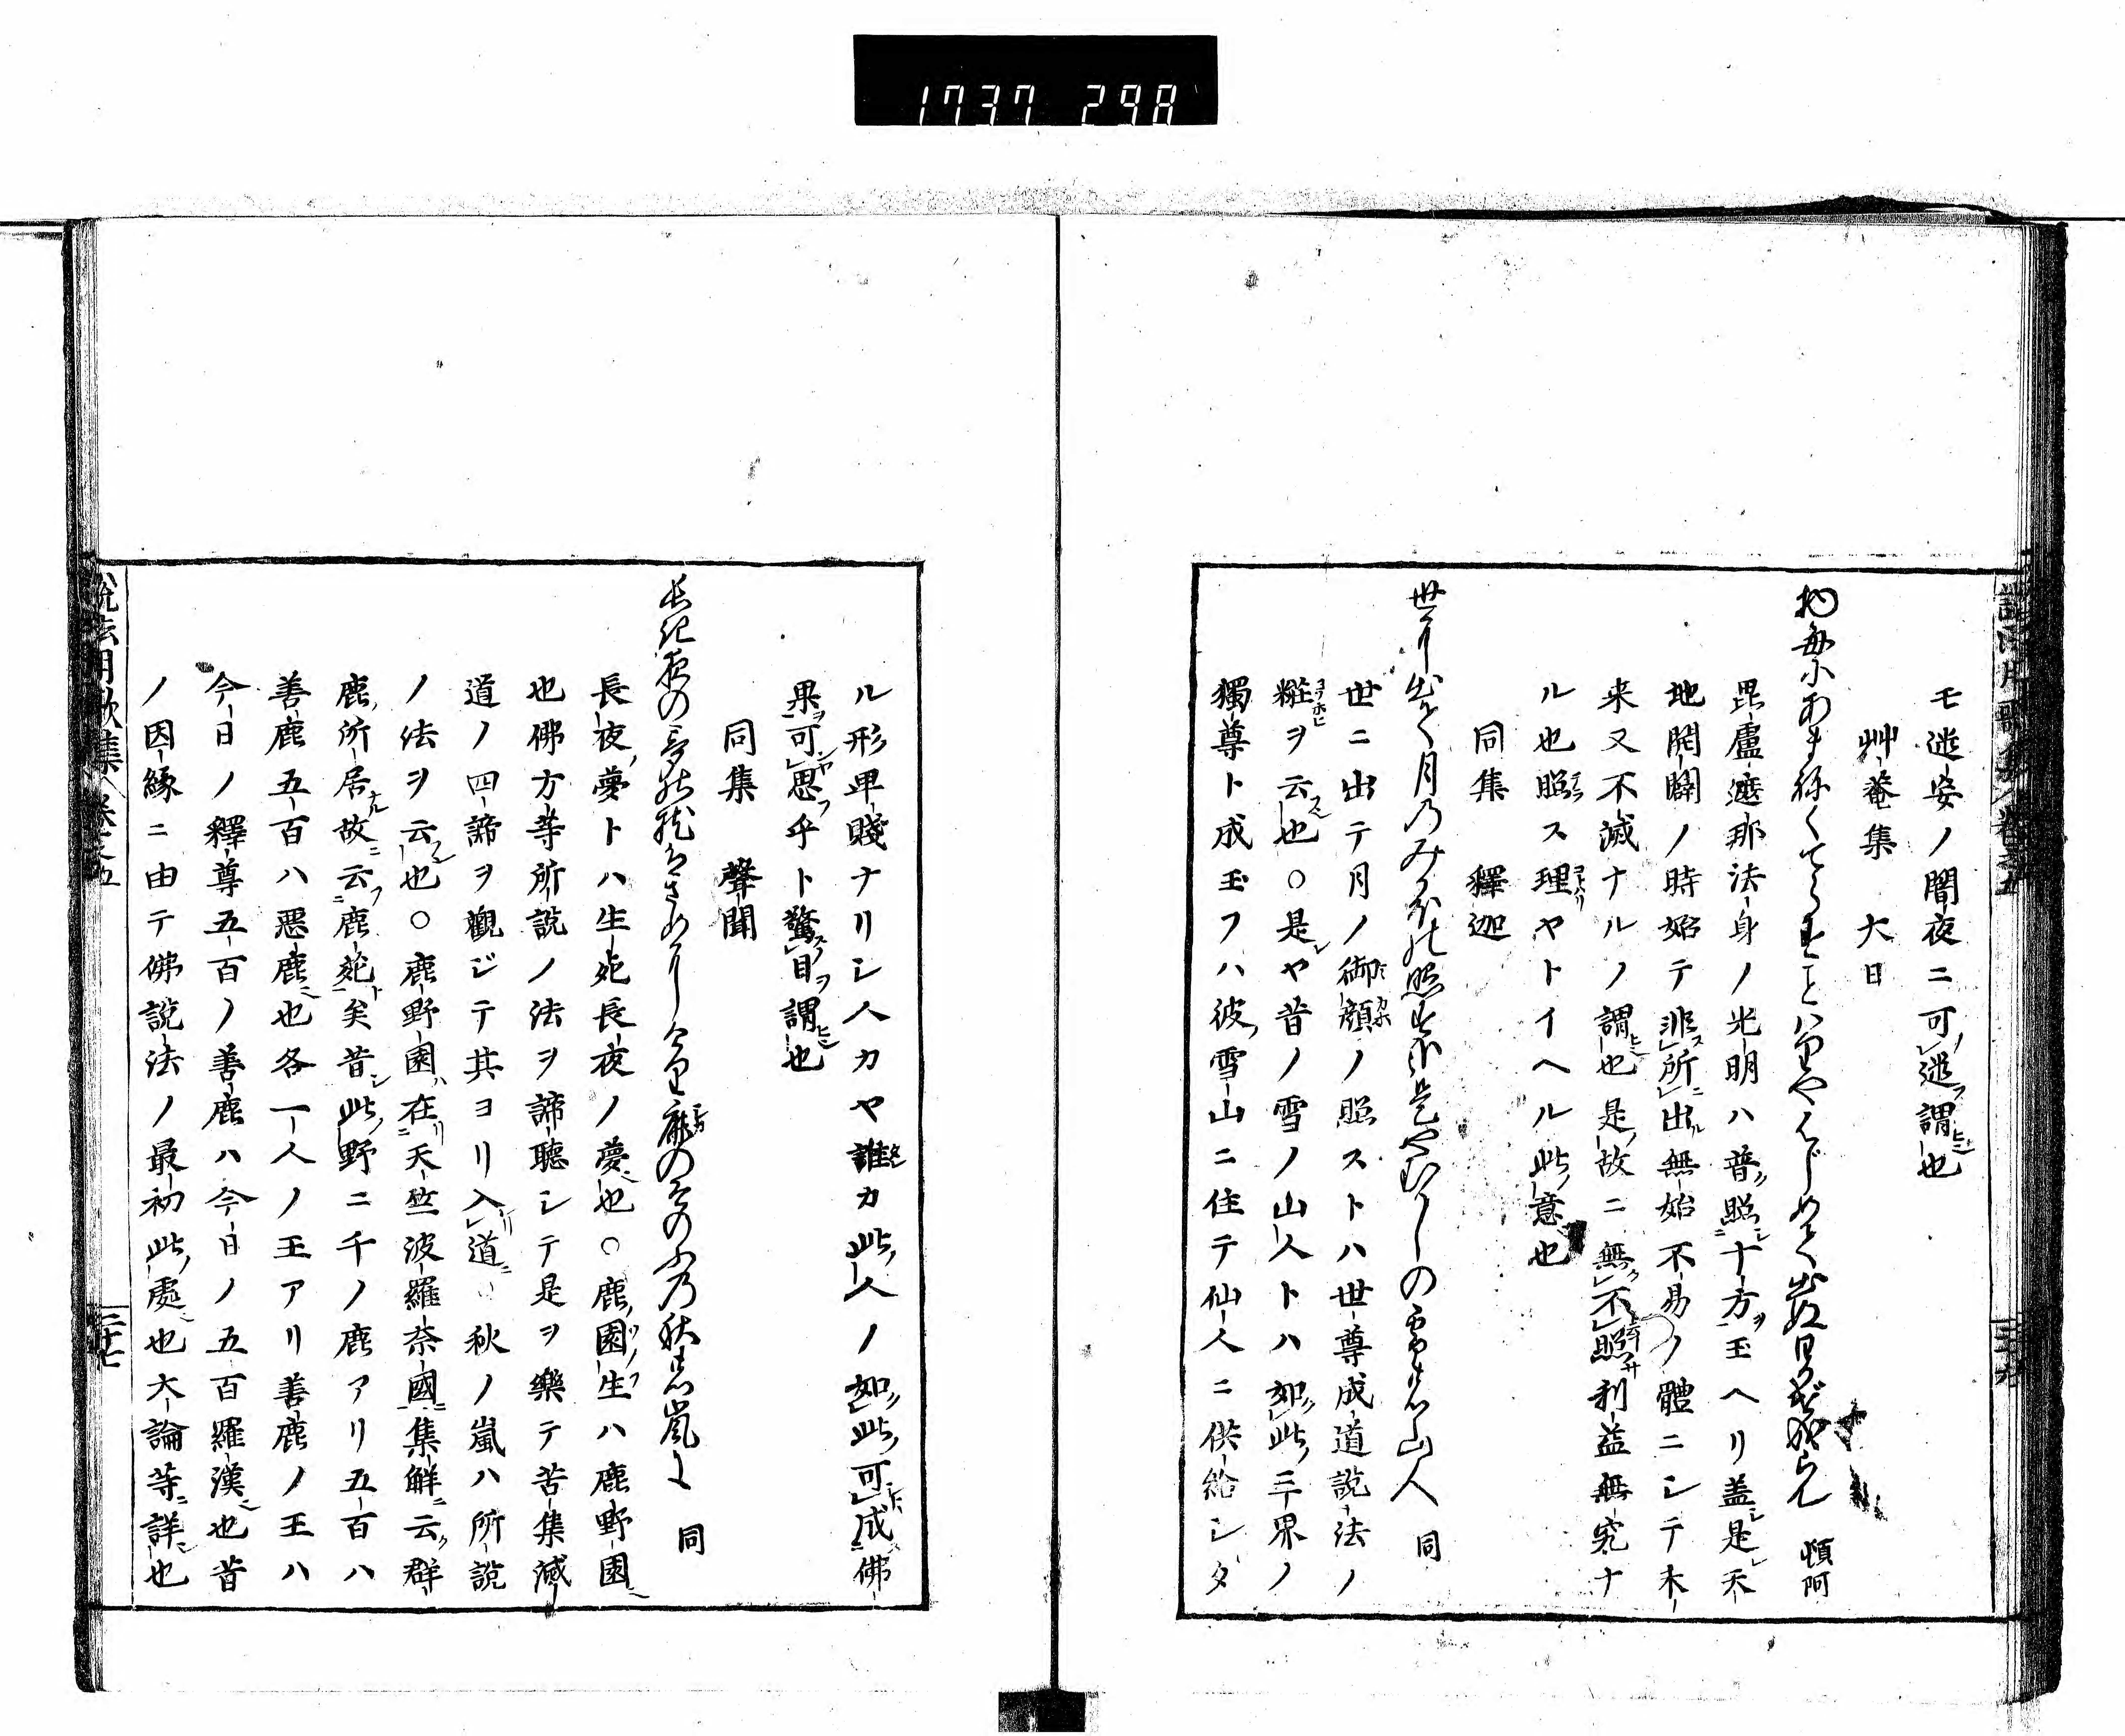 1737 298
モ迷妄ノ闇夜ニ可迷謂也
艸菴集 大日
物毎にあまねくてらすことハりやはじめて出ぬ日かげ成らん 頓阿
毘盧遮那法身ノ光明ハ普照十方玉ヘリ盖是天
地開闢ノ時始テ非所出無始不易ノ體ニシテ未
来又不滅ナルノ謂也是故ニ無不照利益無究ナ
ル也照ス理ヤトイヘル此意也
同集 釋迦
世に出て月のみかほの照すにも是やむかしの雪の山人 同
世ニ出テ月ノ御顔ノ照ストハ世尊成道説法ノ
粧ヲ云也〇是ヤ昔ノ雪ノ山人トハ如此三界ノ
獨尊ト成玉フハ彼雪山ニ住テ仙人ニ供給シダ
ル形卑賤ナリシ人カヤ誰カ此人ノ如此可成佛
果可思乎ト驚目謂也
同集 聲聞
長き夜の夢ぞさめにし鹿のそのふの秋の嵐に 同
長夜夢トハ生死長夜ノ夢也〇鹿園生ハ鹿野園
也佛方等所説ノ法ヲ諦聽シテ是ヲ樂テ苦集滅
道ノ四諦ヲ觀ジテ其ヨリ入道〇秋ノ嵐ハ所説
ノ法ヲ云也〇鹿野園在天竺波羅奈國集解云群
鹿所居故云鹿苑矣昔此野ニ千ノ鹿アリ五百ハ
善鹿五百ハ惡鹿也各一人ノ王アリ善鹿ノ王ハ
今日ノ釋尊五百ノ善鹿ハ今日ノ五百羅漢也昔
ノ因縁ニ由テ佛説法ノ最初此處也大論等詳也
説法用歌集 巻之五 二十七